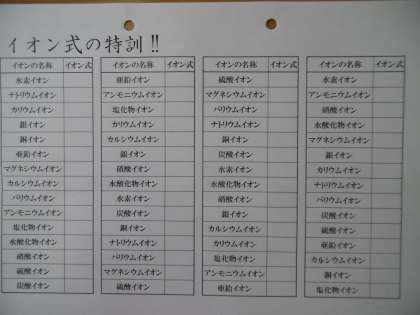 イオン式の特訓!!
イオンの名称 イオン式
水素イオン
ナトリウムイオン
カリウムイオン
銀イオン
銅イオン
亜鉛イオン
マグネシウムイオン
カルシウムイオン
バリウムイオン
アンモニウムイオン
塩化物イオン
水酸化物イオン
硝酸イオン
硫酸イオン
炭酸イオン
イオンの名称 イオン式
亜鉛イオン
アンモニウムイオン
塩化物イオン
カリウムイオン
カルシウムイオン
銀イオン
硝酸イオン
水酸化物イオン
水素イオン
炭酸イオン
銅イオン
ナトリウムイオン
バリウムイオン
マグネシウムイオン
硫酸イオン
イオンの名称 イオン式
硫酸イオン
マグネシウムイオン
バリウムイオン
ナトリウムイオン
銅イオン
炭酸イオン
水素イオン
水酸化物イオン
硝酸イオン
銀イオン
カルシウムイオン
カリウムイオン
塩化物イオン
アンモニウムイオン
亜鉛イオン
イオンの名称 イオン式
水素イオン
アンモニウムイオン
硝酸イオン
水酸化物イオン
マグネシウムイオン
銀イオン
カリウムイオン
ナトリウムイオン
バリウムイオン
炭酸イオン
硫酸イオン
亜鉛イオン
カルシウムイオン
銅イオン
塩化物イオン